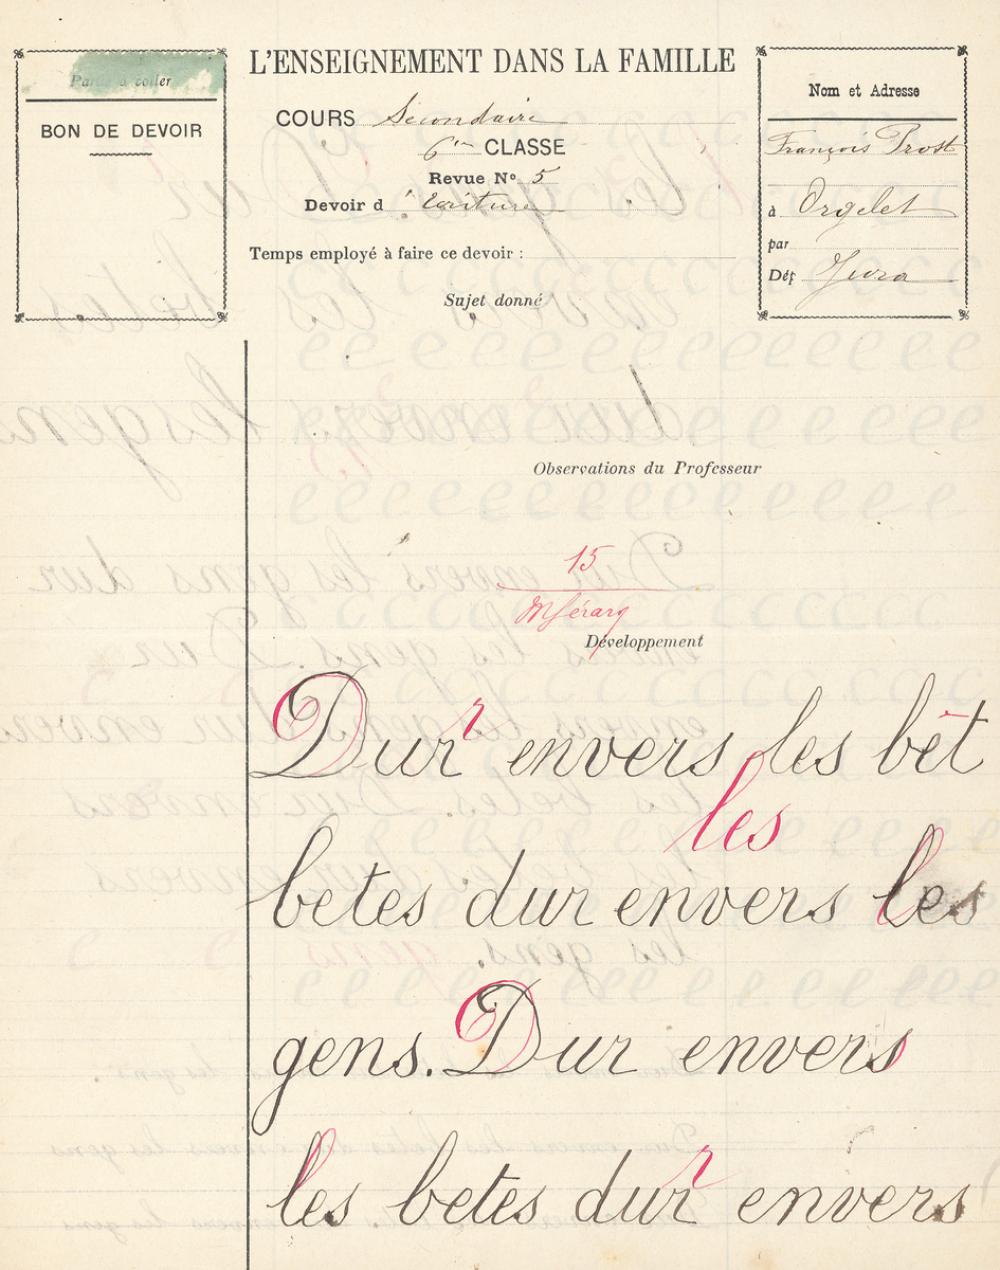 L'ENSEIGNEMENT DANS LA FAMILLE
Partie à coller
BON DE DEVOIR
COURS Secondaire
6me CLASSE
Revue No 5
Devoir d'Ecriture
Temps employé à faire ce devoir :
Sujet donné
Nom et Adresse
François Prost
à Orgelet
par
Dép Jura
Observations du Professeur
15
Développement
Dur envers les bêt
r
les
betes dur envers les
gens. Dur envers
les betes dur envers
r